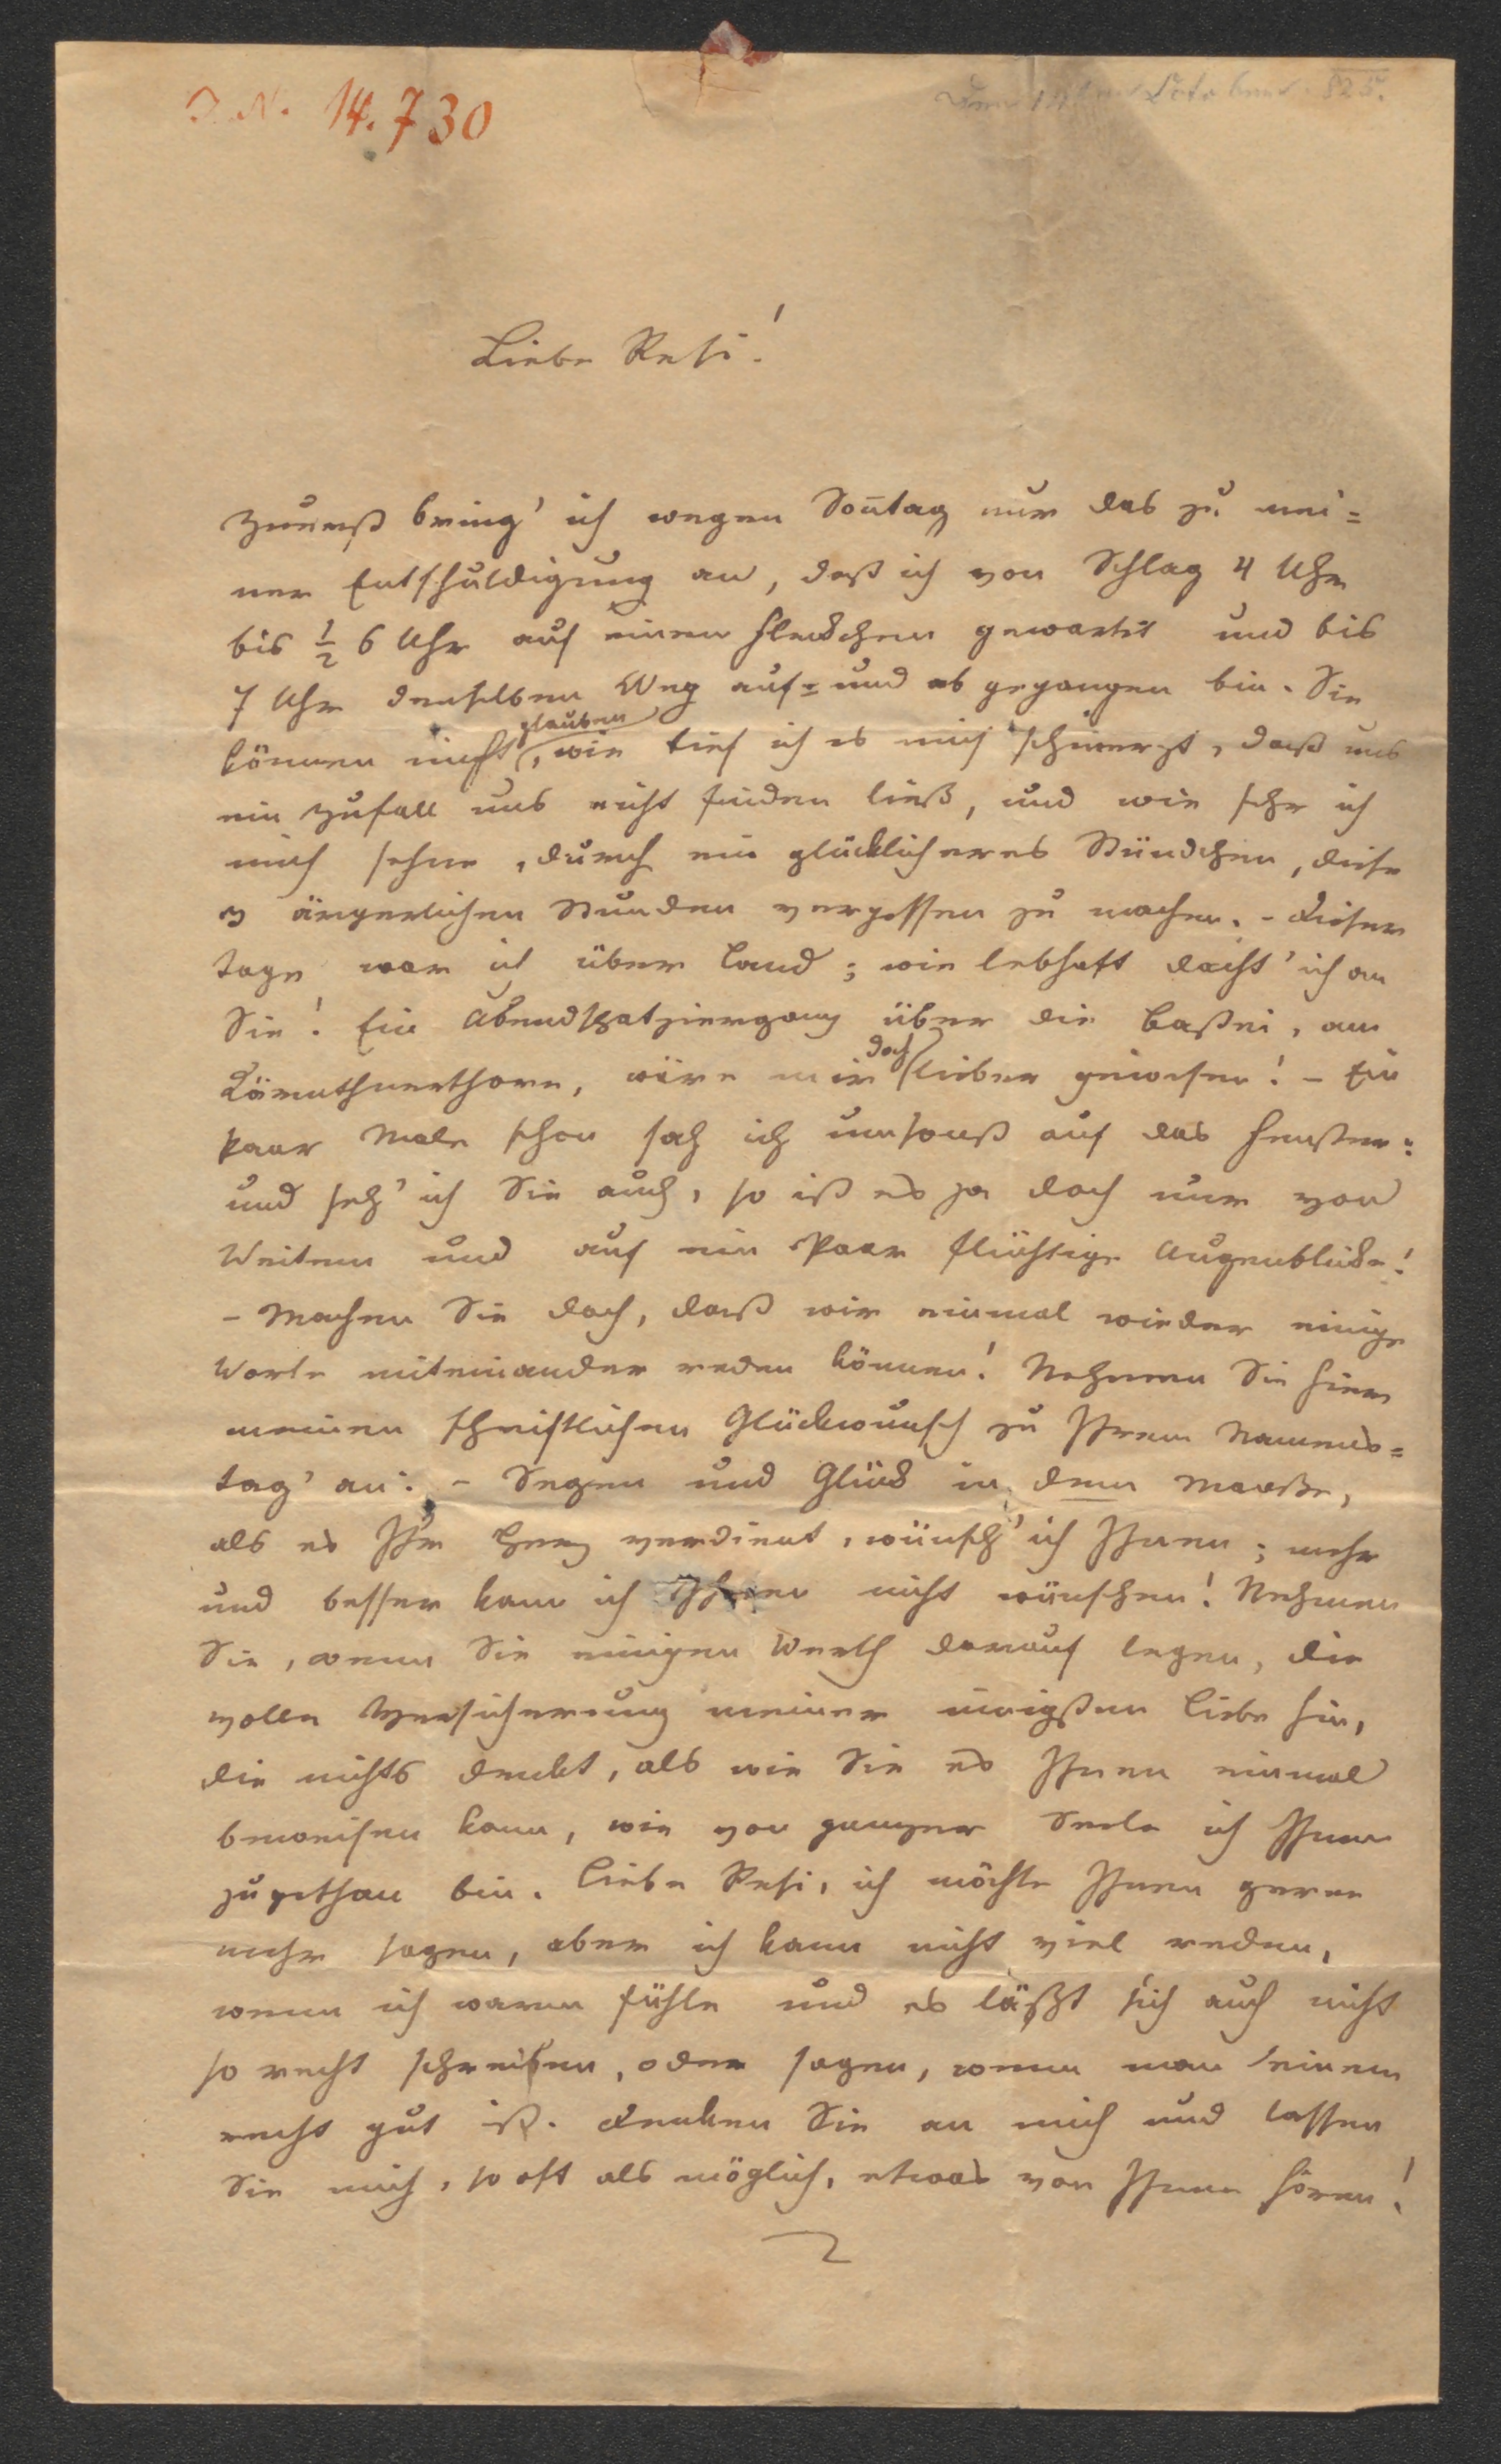 I. N. 14.730
Den 14ten October 825.
Liebe Resi!
Zuerst bring' ich wegen Sōntag nur das zu mei=
ner Entschuldigung an, daß ich von Schlag 4 Uhr
bis ½ 6 Uhr auf einem Fleckchen gewartet und bis
7 Uhr denselben Weg auf= und ab gegangen bin. Sie
können nicht glauben, wie tief ich es mich schmerzt, daß uns
ein Zufall uns nicht finden ließ, und wie sehr ich
mich sehne, durch ein glücklicheres Stündchen, diese
3 ärgerlichen Stunden vergessen zu machen. - Dieser
Tage war ich über Land; wie lebhaft dacht' ich an
Sie! Ein Abendspatziergang über die Bastei, am
Kärnthnerthore, wäre mir doch lieber gewesen! - Ein
Paar Male schon sah ich umsonst auf das Fenster:
und seh' ich Sie auch, so ist es ja doch nur von
Weitem und auf ein Paar flüchtige Augenblicke!
- Machen Sie doch, daß wir einmal wieder einige
Worte miteinander reden können! Nehmen Sie hier
meinen schriftlichen Glückwunsch zu Ihrem Namens=
tag' an: - Segen und Glück in dem Maaße,
als es Ihr Herz verdient, wünsch' ich Ihnen; mehr
und besser kann ich Ihnen nicht wünschen! Nehmen
Sie, wenn Sie einigen Werth darauf legen, die
volle Versicherung meiner innigsten Liebe hin,
die nichts denkt, als wie Sie es Ihnen einmal
beweisen kann, wie von ganzer Seele ich Ihnen
zugethan bin. Liebe Resi, ich möchte Ihnen gerne
mehr sagen, aber ich kann nicht viel reden,
wenn ich warm fühle und es läßt sich auch nicht
so recht schreiben, oder sagen, wenn man einem
recht gut ist. Denken Sie an mich und lassen
Sie mich, so oft als möglich, etwas von Ihnen hören!